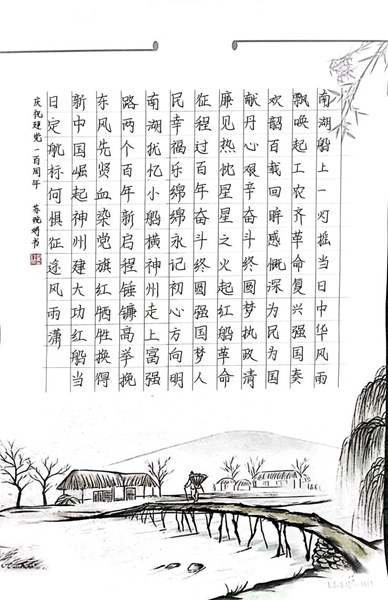 南湖船上一灯摇当日中华风雨
飘唤起工农齐革命复兴强国奏
欢韶百载回眸感慨深为民为国
献丹心艰辛奋斗终圆梦执政清
廉见热忱星星之火起红船革命
征程过百年奋斗终圆强国梦人
民幸福乐绵绵永记初心方向明
南湖犹忆小船横神州走上富强
路两个百年新启程锤镰高举挽
东风先贤血染党旗红牺牲换得
新中国崛起神州建大功红船当
日定航标何惧征途风雨潇
庆祝建党一百周年 苏婉